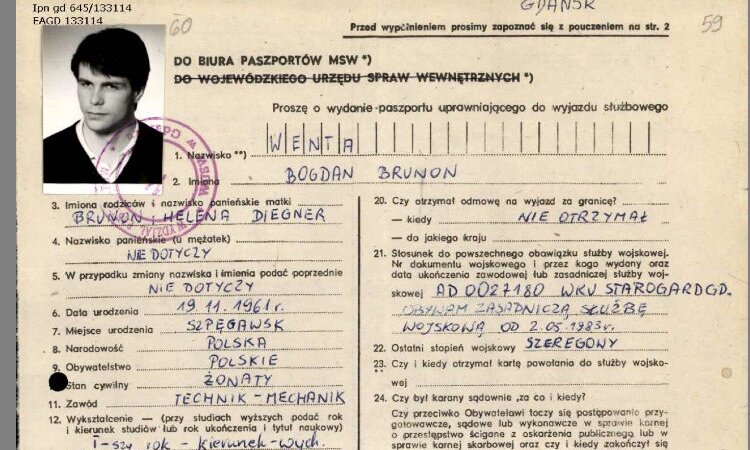 Ipn gd 645/133114
EAGD 133114
60
GDAŃSK
59
Przed wypełnieniem prosimy zapoznać się z pouczeniem na str. 2
DO BIURA PASZPORTÓW MSW *)
DO WOJEWÓDZKIEGO URZĘDU SPRAW WEWNĘTRZNYCH *)
Proszę o wydanie paszportu uprawniającego do wyjazdu służbowego
1. Nazwisko **) WENTA
2. Imiona BOGDAN BRUNON
3. Imiona rodziców i nazwisko panieńskie matki
BRUNON i HELENA DIEGNER
4. Nazwisko panieńskie (u mężatek)
NIE DOTYCZY
5. W przypadku zmiany nazwiska i imienia podać poprzednie
NIE DOTYCZY
6. Data urodzenia 19.11.1961r.
7. Miejsce urodzenia SZPĘGAWSK
8. Narodowość POLSKA
9. Obywatelstwo POLSKIE
Stan cywilny ŻONATY
11. Zawód TECHNIK-MECHANIK
12. Wykształcenie — (przy studiach wyższych podać rok
i kierunek studiów lub rok ukończenia i tytuł naukowy)
I-szy rok - kierunek-wych.
20. Czy otrzymał odmowę na wyjazd za granicę?
— kiedy NIE OTRZYMAŁ
— do jakiego kraju
21. Stosunek do powszechnego obowiązku służby wojskowej.
Nr dokumentu wojskowego i przez kogo wydany oraz
data ukończenia zawodowej lub zasadniczej służby woj-
skowej AD 0027180 WKU STAROGARD GD.
ODBYWAM ZASADNICZĄ SŁUŻBĘ
WOJSKOWĄ OD 2.05.1983r.
22. Ostatni stopień wojskowy SZEREGOWY
23. Czy i kiedy otrzymał kartę powołania do służby wojsko-
wej
24. Czy był karany sądownie ,za co i kiedy?
Czy przeciwko Obywatelowi toczy się postępowanie przy-
gotowawcze, sądowe lub wykonawcze w sprawie karnej
o przestępstwo ścigane z oskarżenia publicznego lub w
sprawie karnej skarbowej oraz czy i kiedy zakończył się